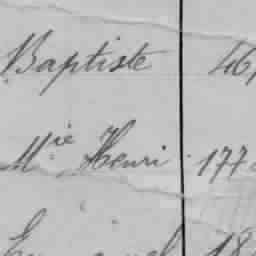 Baptiste 46
Mie Henri 177
18